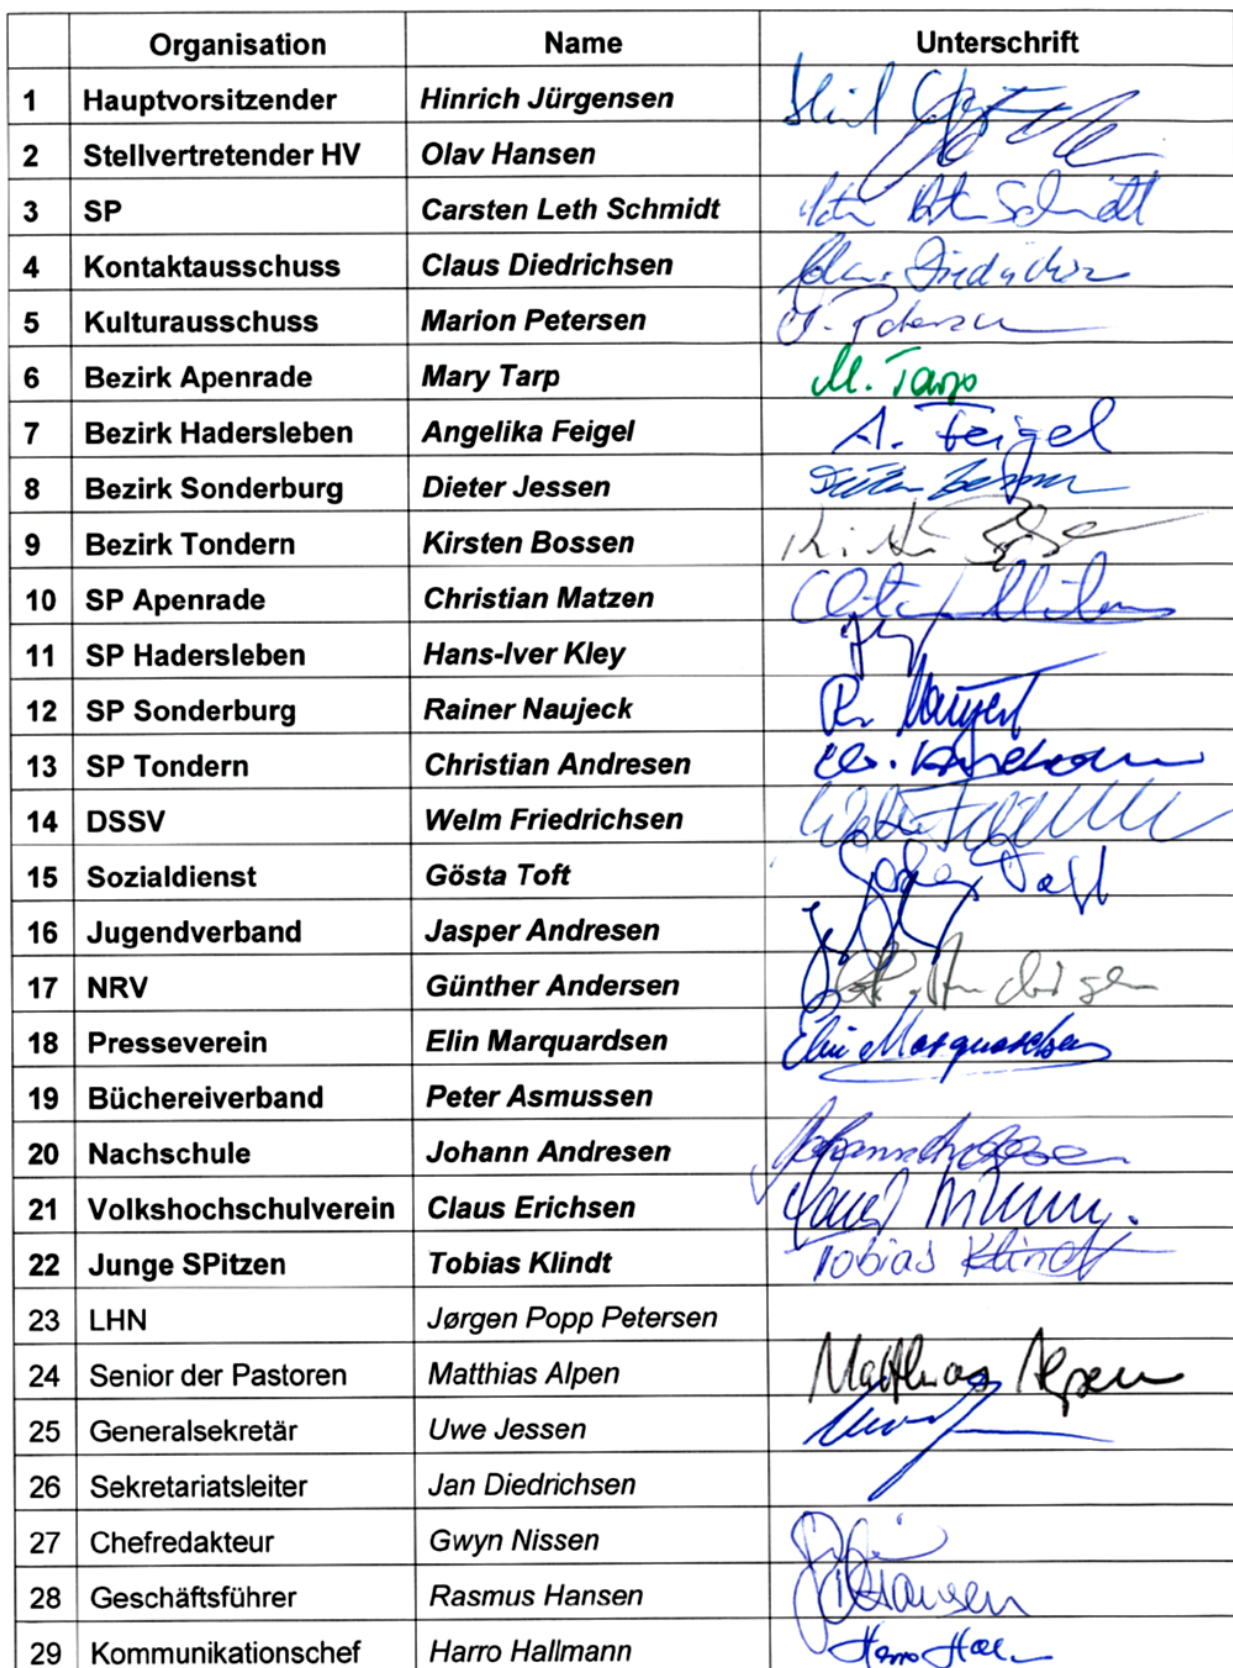 Organisation Name Unterschrift
1 Hauptvorsitzender Hinrich Jürgensen
2 Stellvertretender HV Olav Hansen
3 SP Carsten Leth Schmidt Schmidt
4 Kontaktausschuss Claus Diedrichsen
5 Kulturausschuss Marion Petersen
6 Bezirk Apenrade Mary Tarp M. Tarp
7 Bezirk Hadersleben Angelika Feigel A. Feigel
8 Bezirk Sonderburg Dieter Jessen
9 Bezirk Tondern Kirsten Bossen
10 SP Apenrade Christian Matzen
11 SP Hadersleben Hans-Iver Kley
12 SP Sonderburg Rainer Naujeck
13 SP Tondern Christian Andresen
14 DSSV Welm Friedrichsen
15 Sozialdienst Gösta Toft
16 Jugendverband Jasper Andresen
17 NRV Günther Andersen
18 Presseverein Elin Marquardsen Elin Marquardsen
19 Büchereiverband Peter Asmussen
20 Nachschule Johann Andresen
21 Volkshochschulverein Claus Erichsen
22 Junge SPitzen Tobias Klindt Tobias Klindt
23 LHN Jørgen Popp Petersen
24 Senior der Pastoren Matthias Alpen Matthias Alpen
25 Generalsekretär Uwe Jessen
26 Sekretariatsleiter Jan Diedrichsen
27 Chefredakteur Gwyn Nissen
28 Geschäftsführer Rasmus Hansen
29 Kommunikationschef Harro Hallmann